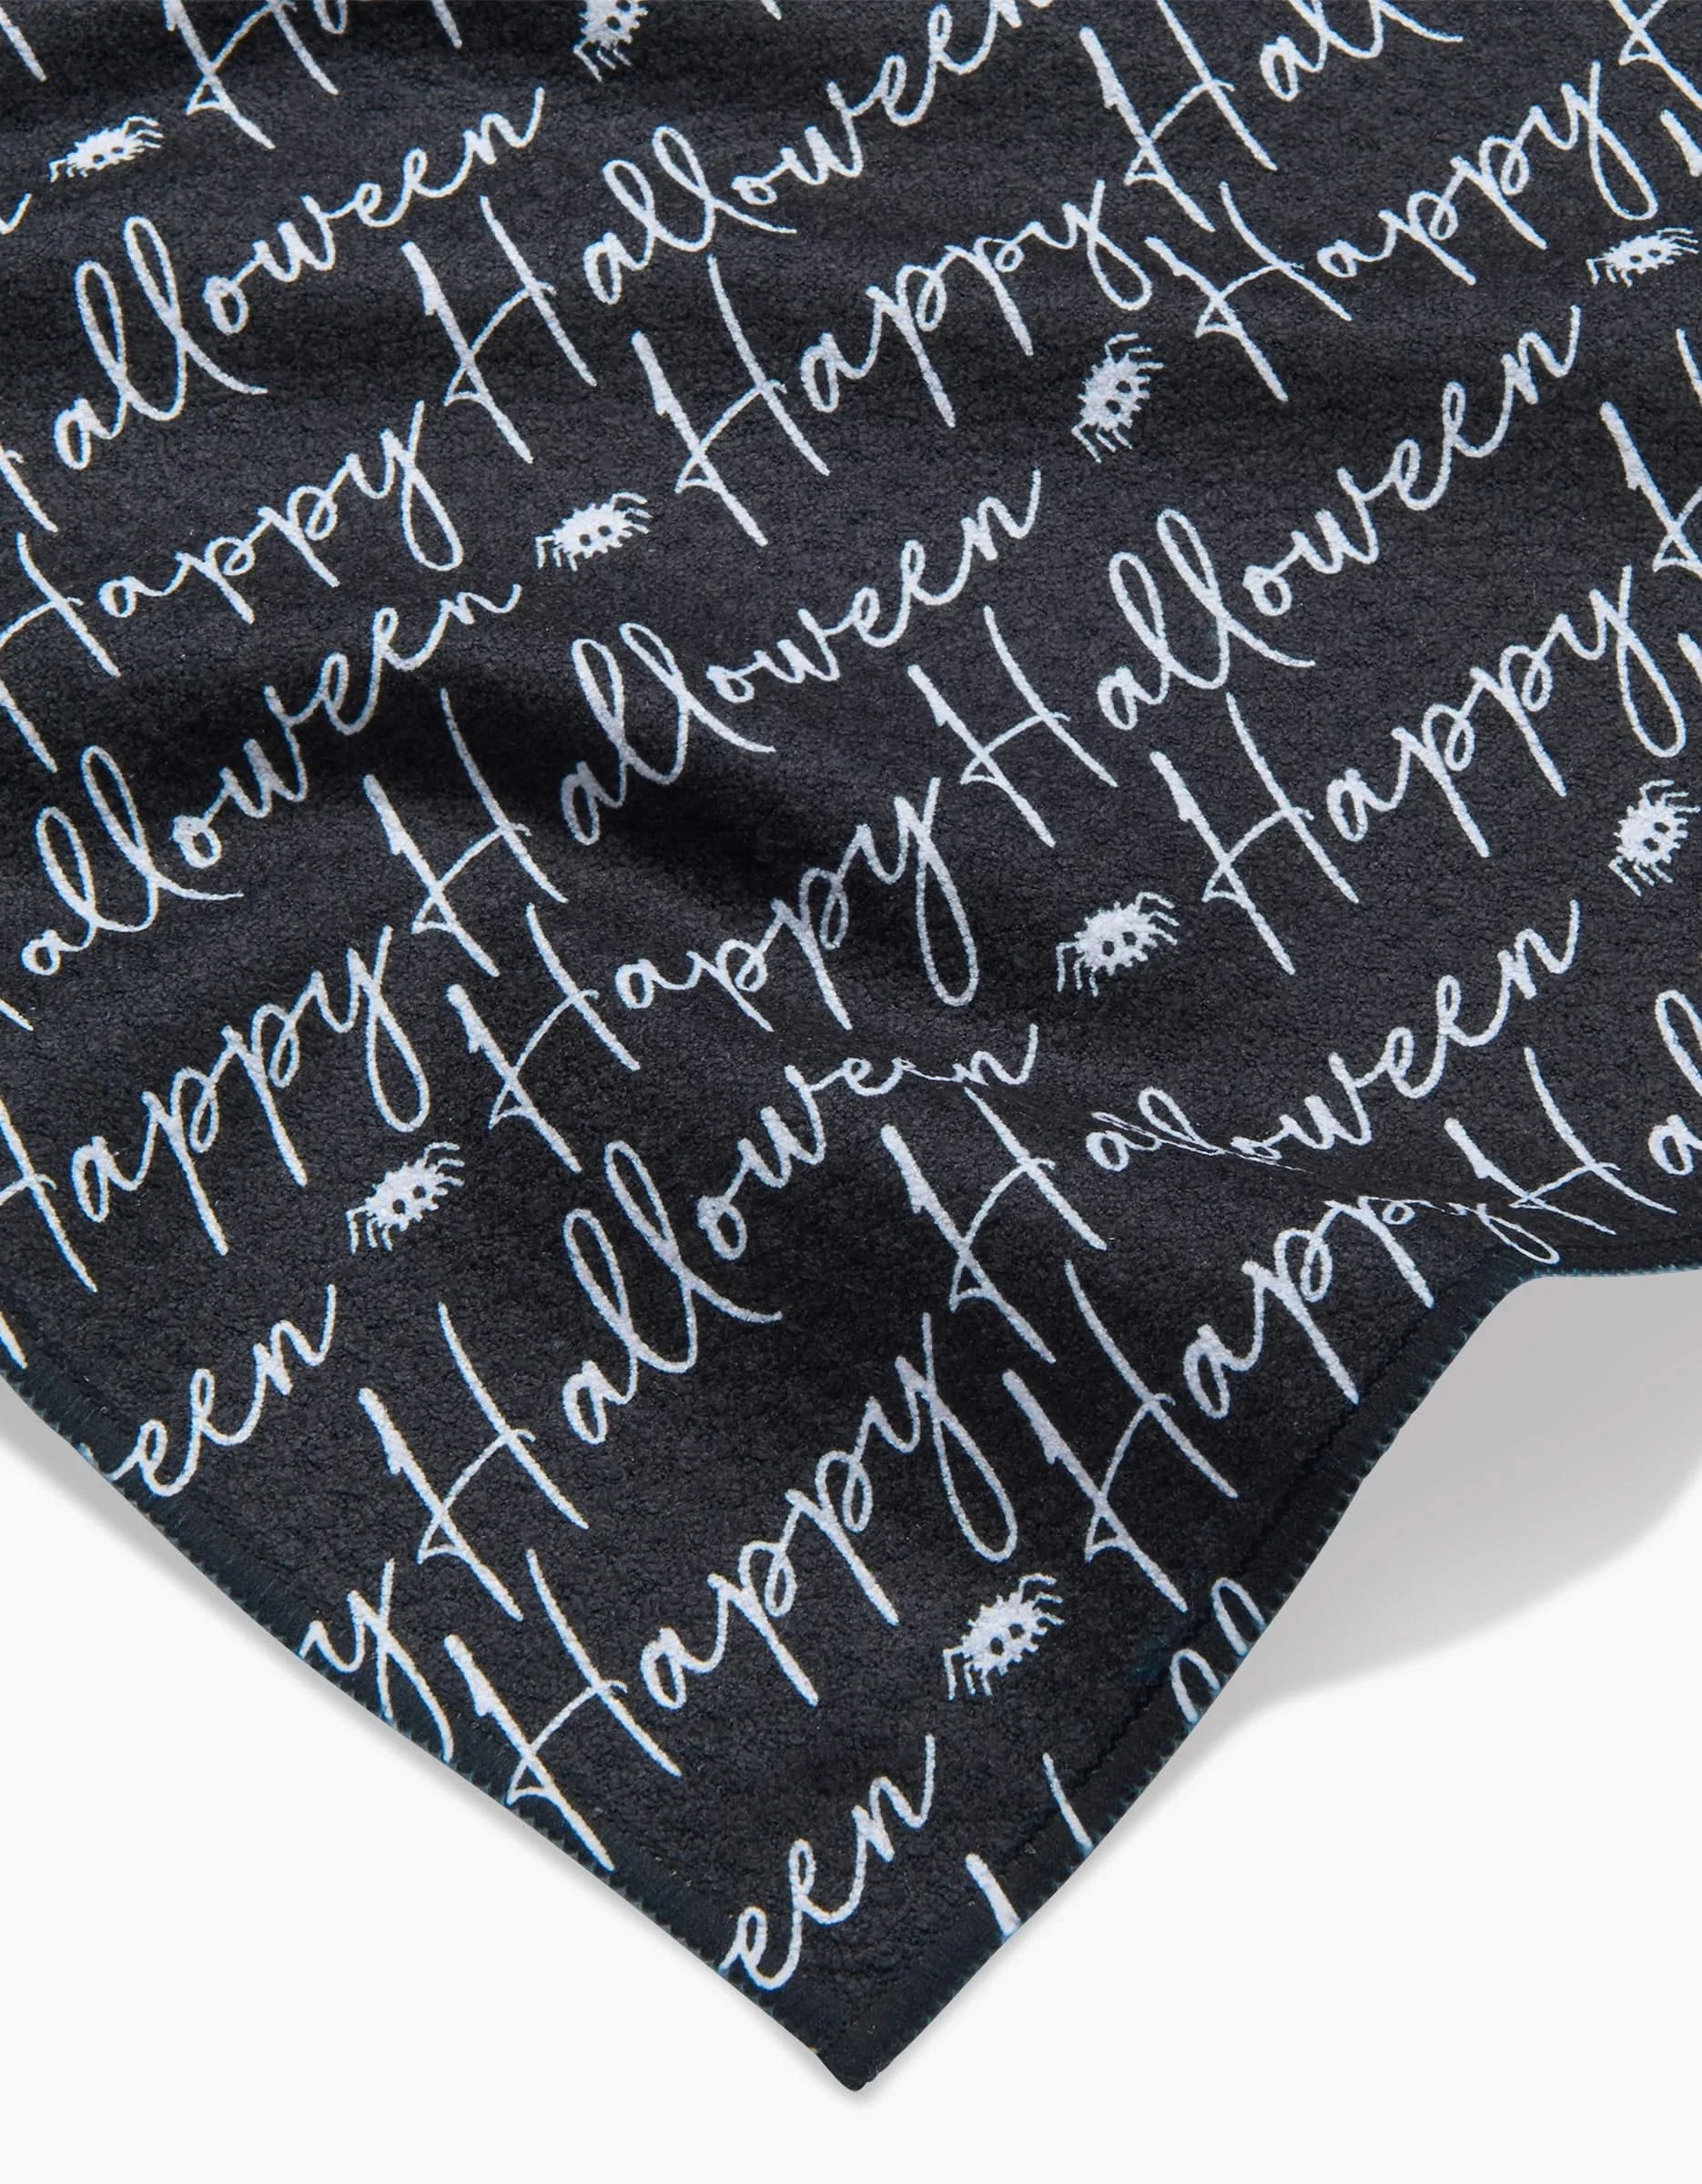 Halloween
Happy Halloween
Happy Halloween
Happy
Halloween
Happy Halloween
Happy Halloween
Happy
Happy Halloween
Happy Halloween
een
Happy Halloween
Happy
Happy
een